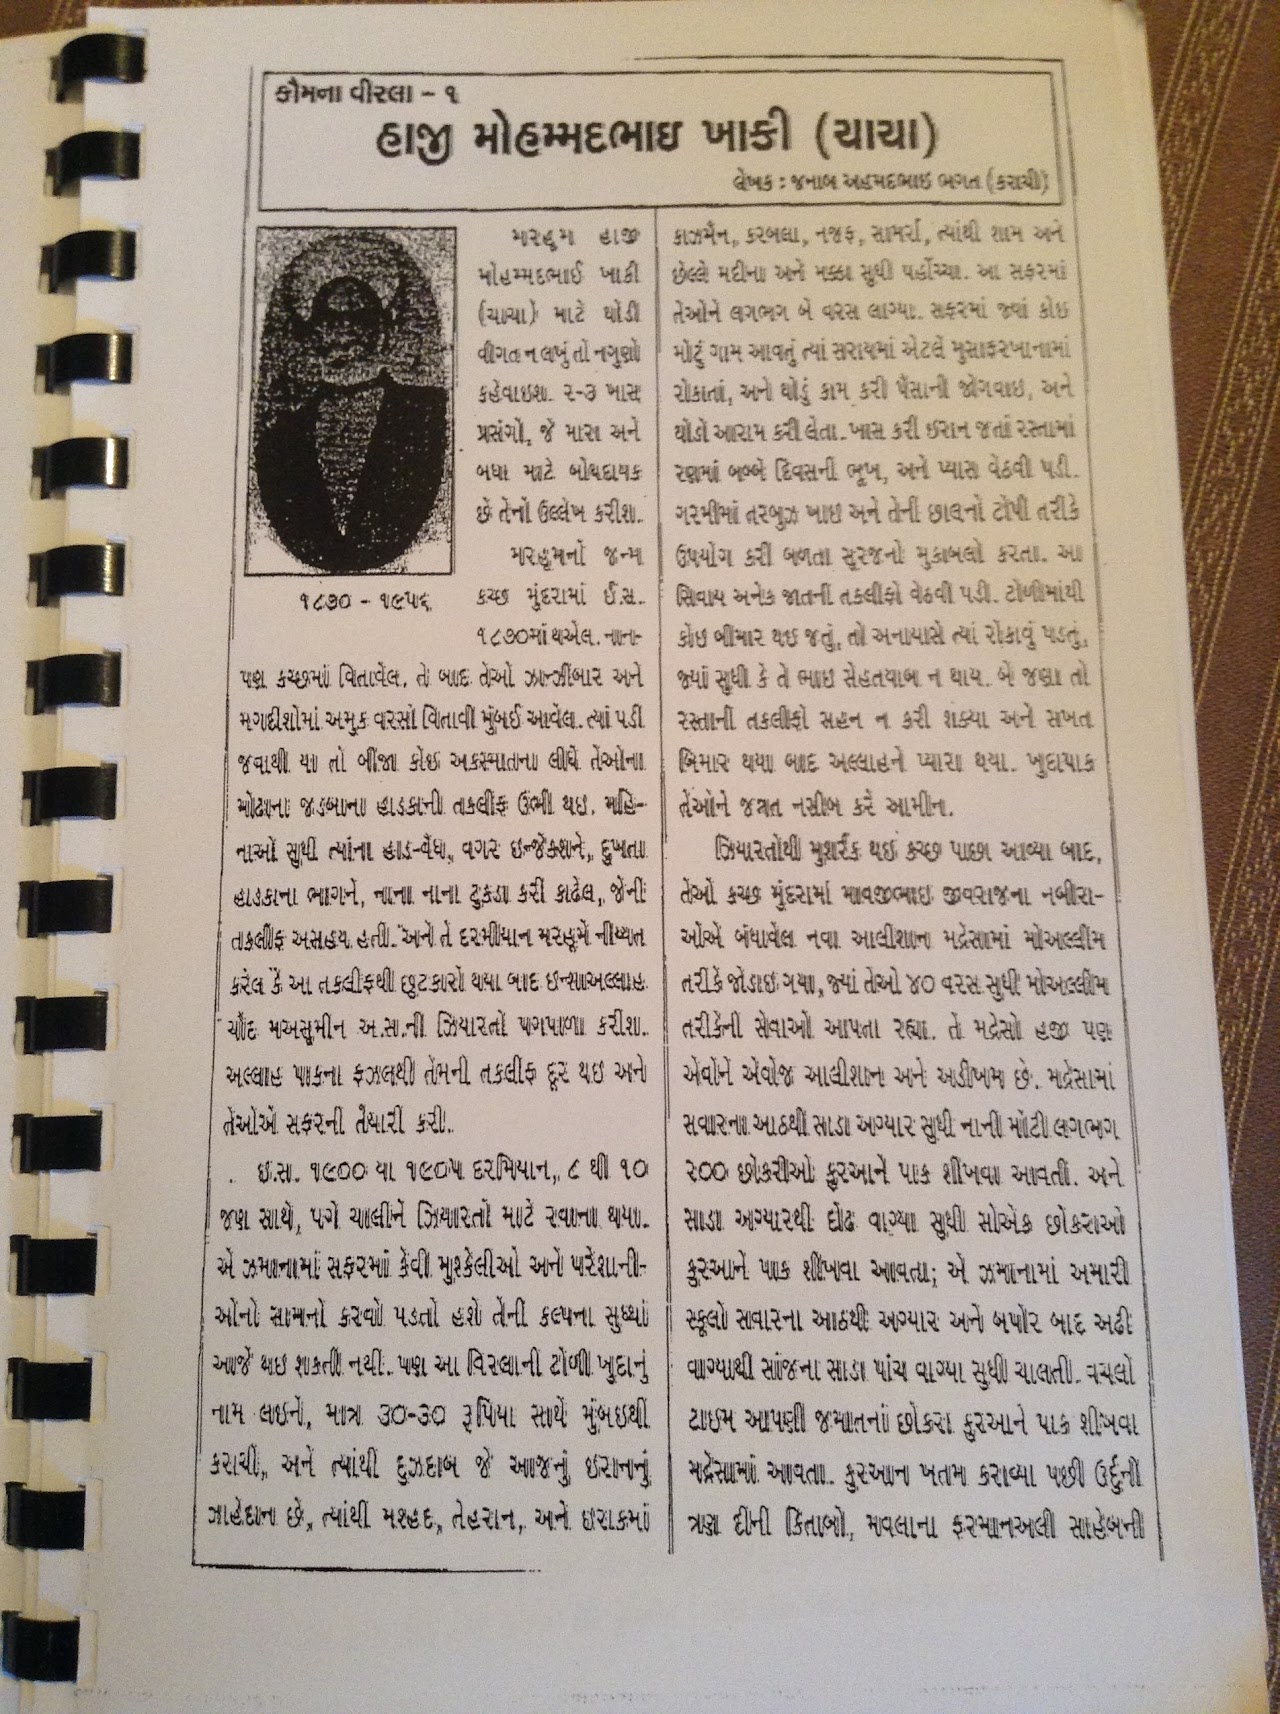 કૌમના વીરલા - ૧
હાજી મોહમ્મદભાઇ ખાકી (ચાચા)
લેખક : જનાબ અહમદભાઇ ભગત (કરાચી)
મરહૂમ હાજી
મોહમ્મદભાઈ ખાકી
(ચાચા) માટે થોડી
વીગત ન લખું તો નગુણો
કહેવાઇશ. ૨-૩ ખાસ
પ્રસંગો, જે મારા અને
બધા માટે બોધદાયક
છે તેનો ઉલ્લેખ કરીશ.
મરહૂમનો જન્મ
કચ્છ મુંદરામાં ઈ.સ.
૧૮૭૦માં થએલ. નાન-
૧૮૭૦ - ૧૯૫૬
પણ કચ્છમાં વિતાવેલ, તે બાદ તેઓ ઝાન્ઝીબાર અને
મગદીશોમાં અમુક વરસો વિતાવી મુંબઈ આવેલ. ત્યાં પડી
જવાથી યા તો બીજા કોઇ અકસ્માતના લીધે તેઓના
મોઢાના જડબાના હાડકાની તકલીફ ઉભી થઇ. મહિ-
નાઓ સુધી ત્યાંના હાડ-વૈધ, વગર ઇન્જેક્શને, દુખતા
હાડકાના ભાગને, નાના નાના ટુકડા કરી કાઢેલ, જેની
તકલીફ અસહય હતી. અને તે દરમીયાન મરહૂમે નીય્યત
કરેલ કે આ તકલીફથી છુટકારો થયા બાદ ઇન્શાઅલ્લાહ
ચૌદ મઅસુમીન અ.સ.ની ઝિયારતો પગપાળા કરીશ.
અલ્લાહ પાકના ફઝલથી તેમની તકલીફ દૂર થઇ અને
તેઓએ સફરની તૈયારી કરી.
ઇ.સ. ૧૯૦૦ યા ૧૯૦૫ દરમિયાન, ૮ થી ૧૦
જણ સાથે, પગે ચાલીને ઝિયારતો માટે રવાના થયા.
એ ઝમાનામાં સફરમાં કેવી મુશ્કેલીઓ અને પરેશાની-
ઓનો સામનો કરવો પડતો હશે તેની કલ્પના સુધ્ધાં
આજે થઇ શકતી નથી. પણ આ વિરલાની ટોળી ખુદાનું
નામ લઇને, માત્ર ૩૦-૩૦ રૂપિયા સાથે મુંબઇથી
કરાચી, અને ત્યાંથી દુઝદાબ જે આજનું ઇરાનનું
ઝાહેદાન છે, ત્યાંથી મશ્હદ, તેહરાન, અને ઇરાકમાં
કાઝમૈન, કરબલા, નજફ, સામર્રા, ત્યાંથી શામ અને
છેલ્લે મદીના અને મક્કા સુધી પહોંચ્યા. આ સફરમાં
તેઓને લગભગ બે વરસ લાગ્યા. સફરમાં જ્યાં કોઇ
મોટું ગામ આવતું ત્યાં સરાયમાં એટલે મુસાફરખાનામાં
રોકાતાં, અને થોડું કામ કરી પૈસાની જોગવાઇ, અને
થોડો આરામ કરી લેતા. ખાસ કરી ઇરાન જતાં રસ્તામાં
રણમાં બબ્બે દિવસની ભૂખ, અને પ્યાસ વેઠવી પડી.
ગરમીમાં તરબુઝ ખાઇ અને તેની છાલનો ટોપી તરીકે
ઉપયોગ કરી બળતા સૂરજનો મુકાબલો કરતા. આ
સિવાય અનેક જાતની તકલીફો વેઠવી પડી. ટોળીમાંથી
કોઇ બીમાર થઇ જતું, તો અનાયાસે ત્યાં રોકાવું પડતું,
જ્યાં સુધી કે તે ભાઇ સેહતયાબ ન થાય. બે જણા તો
રસ્તાની તકલીફો સહન ન કરી શક્યા અને સખત
બિમાર થયા બાદ અલ્લાહને પ્યારા થયા. ખુદાપાક
તેઓને જન્નત નસીબ કરે આમીન.
ઝિયારતોથી મુશર્રફ થઇ કચ્છ પાછા આવ્યા બાદ,
તેઓ કચ્છ મુંદરામાં માવજીભાઇ જીવરાજના નબીરા-
ઓએ બંધાવેલ નવા આલીશાન મદ્રેસામાં મોઅલ્લીમ
તરીકે જોડાઇ ગયા, જ્યાં તેઓ ૪૦ વરસ સુધી મોઅલ્લીમ
તરીકેની સેવાઓ આપતા રહ્યા. તે મદ્રેસો હજી પણ
એવોને એવોજ આલીશાન અને અડીખમ છે. મદ્રેસામાં
સવારના આઠથી સાડા અગ્યાર સુધી નાની મોટી લગભગ
૨૦૦ છોકરીઓ કુરઆને પાક શીખવા આવતી. અને
સાડા અગ્યારથી દોઢ વાગ્યા સુધી સોએક છોકરાઓ
કુરઆને પાક શીખવા આવતા; એ ઝમાનામાં અમારી
સ્કૂલો સવારના આઠથી અગ્યાર અને બપોર બાદ અઢી
વાગ્યાથી સાંજના સાડા પાંચ વાગ્યા સુધી ચાલતી. વચલો
ટાઇમ આપણી જમાતનાં છોકરા કુરઆને પાક શીખવા
મદ્રેસામાં આવતા. કુરઆન ખતમ કરાવ્યા પછી ઉર્દુની
ત્રણ દીની કિતાબો, મવલાના ફરમાનઅલી સાહેબની